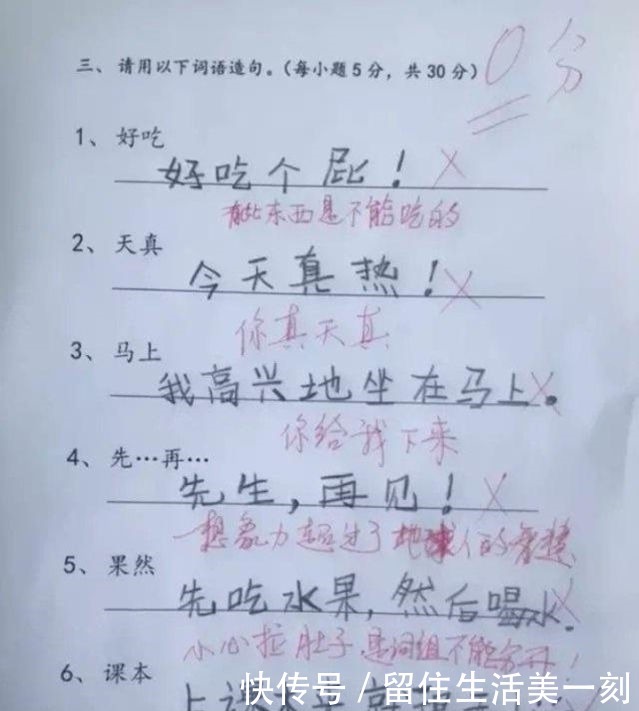 三、请用以下词语造句。(每小题5分，共30分) 0分
1、好吃
好吃个屁！
有些东西是不能吃的
2、天真
今天真热！
你真天真
3、马上
我高兴地坐在马上。
你给我下来
4、先…再…
先生，再见！
想象力超过了地球人的智慧
5、果然
先吃水果，然后喝水。
小心拉肚子 是词组不能分开！
6、课本
上
快传号/留住生活美一刻